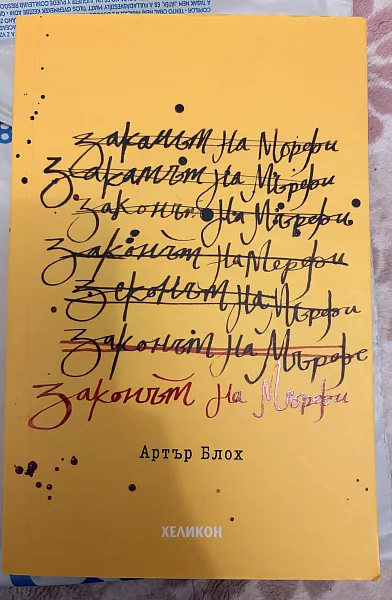 закамът на Морфи
Закамът на Мърфи
Законът на Мърфи
Законът на Мерфи
Зеконът на Мърфи
Законът на Мърфе
Законът на Мърфи
Артър Блох
ХЕЛИКОН